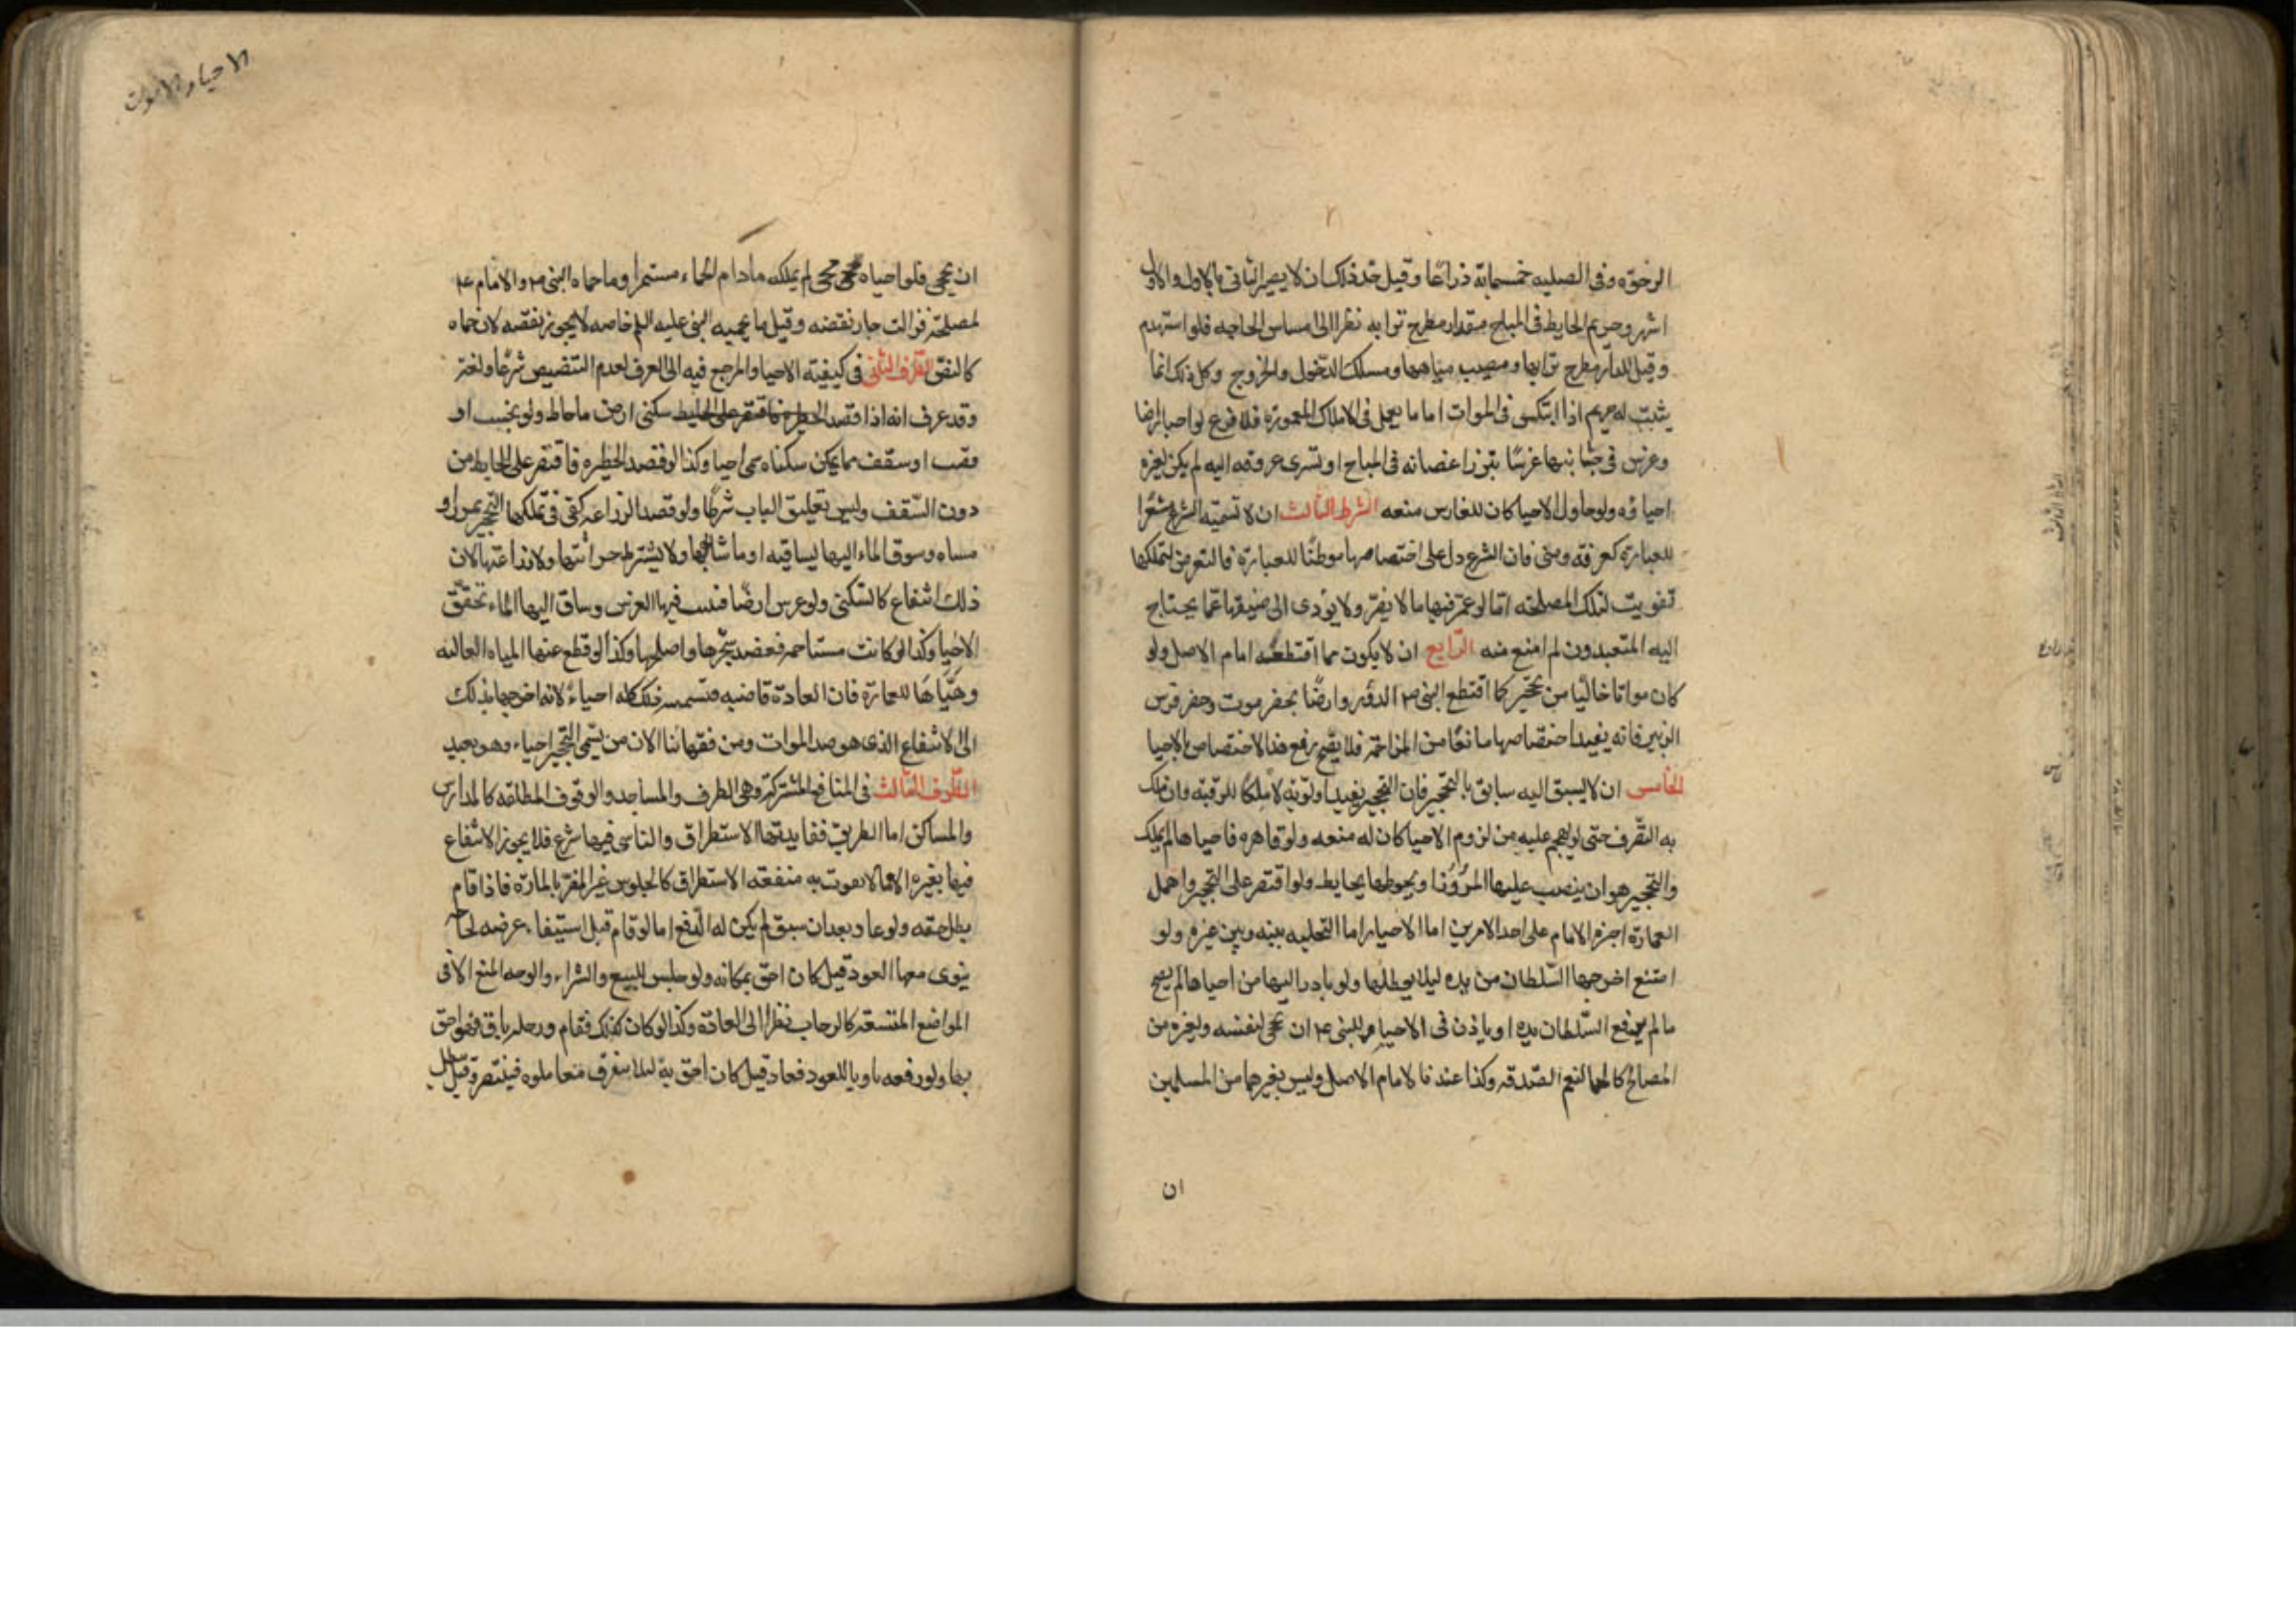 الرخوة وفى الصلبه خمسمائة ذراعا وقيل حد ذلك ان لا يضر الثانى بالاول والاول
اشهر وحريم الحايط فى المباح مقدار مطرح ترابه نظرا الى مساس الحاجه فلو استهدم
وقيل للدار مطرح ترابها ومصب مياهها ومسلك الدخول والخروج وكل ذلك انما
يثبت له حريم اذا ابتكى فى الموات اما ما يعمل فى الاملاك المعمورة فلا فرع لو احيا ارضا
وغرس فى جانبها غرسا تبرز اغصانه فى المباح او تسرى عروقه اليه لم يكن لغيره
احياؤه ولو حاول الاحيا كان للغارس منعه الشرط الثالث ان لا تسميه الشرع مشعرا
للعبادة كعرفه ومنى فان الشرع دل على اختصاصها موطنا للعبادة فالتعرض لتملكها
تفويت لتلك المصلحة اما لو عمر فيها ما لا يضر ولا يؤدى الى ضيقها عما يحتاج
اليه المتعبدون لم امنع منه الرابع ان لا يكون مما اقتطعه امام الاصل ولو
كان مواتا خاليا من تحجير كما اقتطع النبى ص الدور وارضا بحضرموت وحضر فرس
الزبير فانه يفيد اختصاصها مانعا من المزاحمة فلا يصح رفع هذا الاختصاص بالاحيا
الخامس ان لا يسبق اليه سابق بالتحجير فان التحجير يفيد اولوية لا ملكا للرقبة وان ملك
به التصرف حتى لو هجم عليه من لزوم الاحيا كان له منعه ولو قاهره فاحياها لم يملك
والتحجير هو ان ينصب عليها المروز او يحوطها بحايط ولو اقتصر على التحجير واهمل
العمارة اجبره الامام على احد الامرين اما الاحياء اما التخليه بينه وبين غيره ولو
امتنع اخرجها السلطان من يده ليلا يعطلها ولو بادر اليها من احياها لم يصح
ما لم يرفع السلطان يده او ياذن فى الاحياء وللنبى ع ان يحمى لنفسه ولغيره من
المصالح كالحمى لنعم الصدقه وكذا عندنا لامام الاصل وليس لغيرهما من المسلمين
ان
الاحياء الاموات
ان يحمى فلو احياه محيى لم يملكه ما دام الحماء مستمرا وما حماه النبى ص والامام ع
لمصلحة فزالت جاز نقضه وقيل ما يحميه النبى عليه السلم خاصه لا يجوز نقضه لان حماه
كالنص الطرف الثانى فى كيفية الاحيا والمرجع فيه الى العرف لعدم التنصيص شرعا ولغة
وقد عرف انه اذا قصد سكنى ارض ما حاط ولو بخشب او
قصب او سقف مما يمكن سكناه سمى احيا وكذا لو قصد الحظيره فاقتصر على الحايط من
دون السقف وليس تعليق الباب شرطا ولو قصد الزراعه كفى فى تملكها التحجير بمرز او
مسناه وسوق الماء اليها بساقيه او ما شابهها ولا يشترط حراثتها ولا زراعتها لان
ذلك انتفاع كالسكنى ولو غرس ارضا فنبت فيها الغرس وساق اليها الماء تحقق
الاحيا وكذا لو كانت مستاجمه فعضد شجرها واصلحها وكذا لو قطع عنها المياه الغالبه
وهيأها للعمارة فان العادة قاضيه بتسميه ذلك كله احياء لانه اخرجها بذلك
الى الانتفاع الذى هو ضد الموات ومن فقهائنا الان من يسمى التحجير احياء وهو بعيد
الطرف الثالث فى المنافع المشتركة وهى الطرق والمساجد والوقوف المطلقه كالمدارس
والمساكن اما الطريق ففايدتها الاستطراق والناس فيها شرع فلا يجوز الانتفاع
فيها بغيره الا ما لا يفوت به منفعة الاستطراق كالجلوس غير المضر بالمارة فاذا قام
بطل حقه ولو عاد بعد ان سبق لم يكن له الدفع اما لو قام قبل استيفاء غرضه لحاجه
ينوى معها العود قيل كان احق بمكانه ولو جلس للبيع والشراء والوجه المنع الا فى
المواضع المتسعه كالرحاب نظرا الى العادة وكذا لو كان كذلك فقام ورحله باق فهو احق
بها ولو رفعه ناويا للعود فعاد قيل كان احق به ليلا يتفرق معاملوه فيتضرر وقيل يبطل